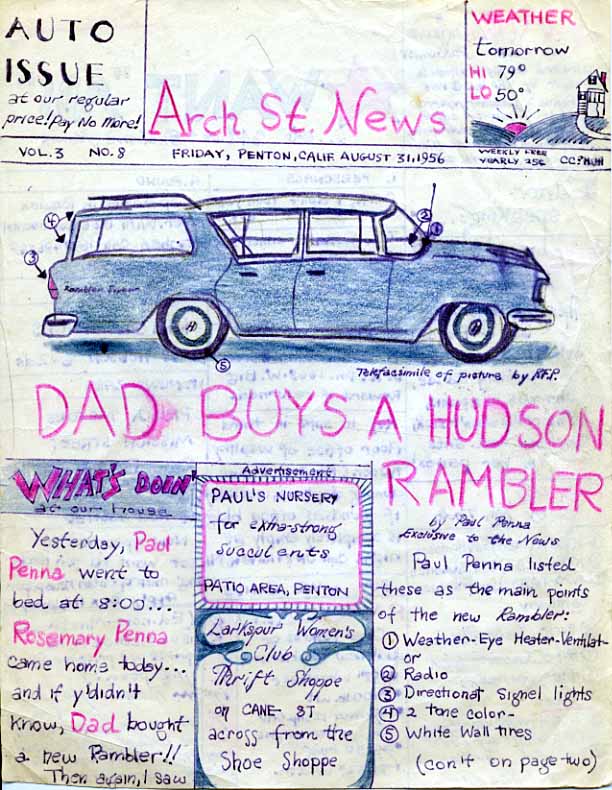 AUTO
ISSUE
at our regular
price! Pay No More!
Arch St. News
WEATHER
tomorrow
HI 79°
LO 50°
VOL. 3 NO. 8 FRIDAY, PENTON, CALIF AUGUST 31, 1956
YEARLY 25¢
④
③
②
①
Rambler
H
⑤
Telefacsimile of picture by
DAD BUYS A HUDSON
RAMBLER
WHAT'S DOIN'
at our house
Yesterday, Paul
Penna went to
bed at 8:00...
Rosemary Penna
came home today...
and if y'didn't
know, Dad bought
a new Rambler!!
Then again, I saw
Advertisement
PAUL'S NURSERY
for extra-strong
succulents
PATIO AREA, PENTON
Larkspur Women's
Club
Thrift Shoppe
on CANE ST
across from the
Shoe Shoppe
by Paul Penna
Exclusive to the News
Paul Penna listed
these as the main points
of the new Rambler:
① Weather-Eye Heater-Ventilat-
or
② Radio
③ Directional Signel lights
④ 2 tone color-
⑤ White Wall tires
(con't on page two)